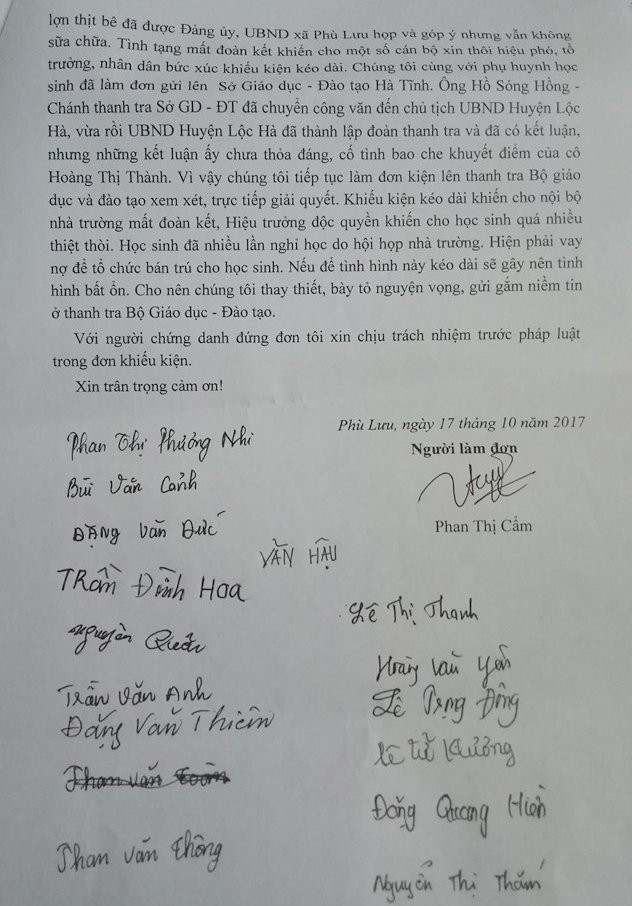 lợn thịt bê đã được Đảng ủy, UBND xã Phù Lưu họp và góp ý nhưng vẫn không
sữa chữa. Tình tạng mất đoàn kết khiến cho một số cán bộ xin thôi hiệu phó, tổ
trưởng, nhân dân bức xúc khiếu kiện kéo dài. Chúng tôi cùng với phụ huynh học
sinh đã làm đơn gửi lên Sở Giáo dục - Đào tạo Hà Tĩnh. Ông Hồ Sóng Hồng -
Chánh thanh tra Sở GD - ĐT đã chuyển công văn đến chủ tịch UBND Huyện Lộc
Hà, vừa rồi UBND Huyện Lộc Hà đã thành lập đoàn thanh tra và đã có kết luận,
nhưng những kết luận ấy chưa thỏa đáng, cố tình bao che khuyết điểm của cô
Hoàng Thị Thành. Vì vậy chúng tôi tiếp tục làm đơn kiện lên thanh tra Bộ giáo
dục và đào tạo xem xét, trực tiếp giải quyết. Khiếu kiện kéo dài khiến cho nội bộ
nhà trường mất đoàn kết, Hiệu trưởng độc quyền khiến cho học sinh quá nhiều
thiệt thòi. Học sinh đã nhiều lần nghỉ học do hội họp nhà trường. Hiện phải vay
nợ để tổ chức bán trú cho học sinh. Nếu để tình hình này kéo dài sẽ gây nên tình
hình bất ổn. Cho nên chúng tôi thay thiết, bày tỏ nguyện vọng, gửi gắm niềm tin
ở thanh tra Bộ Giáo dục - Đào tạo.
Với người chứng danh đứng đơn tôi xin chịu trách nhiệm trước pháp luật
trong đơn khiếu kiện.
Xin trân trọng cảm ơn!
Phù Lưu, ngày 17 tháng 10 năm 2017
Người làm đơn
Phan Thị Cẩm
Phan Thị Phương Nhi
Bùi Văn Cảnh
Đặng Văn Đức
VĂN HẬU
Trần Đình Hoa
Lê Thị Thanh
Nguyễn
Hoàng Văn Yên
Trần Văn Anh
Lê Trọng Đồng
Đặng Văn Thiên
Lê
Phan Văn
Đặng Quang Hiền
Phan Văn Thông
Nguyễn Thị Thắm